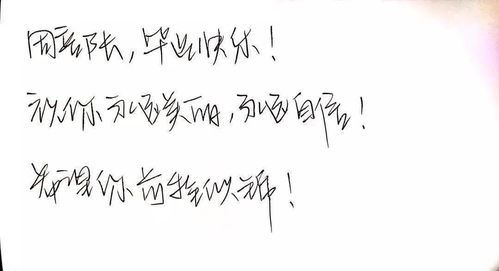 周部长,毕业快乐!
祝你永远美丽,永远自信!
祝你前程似锦!